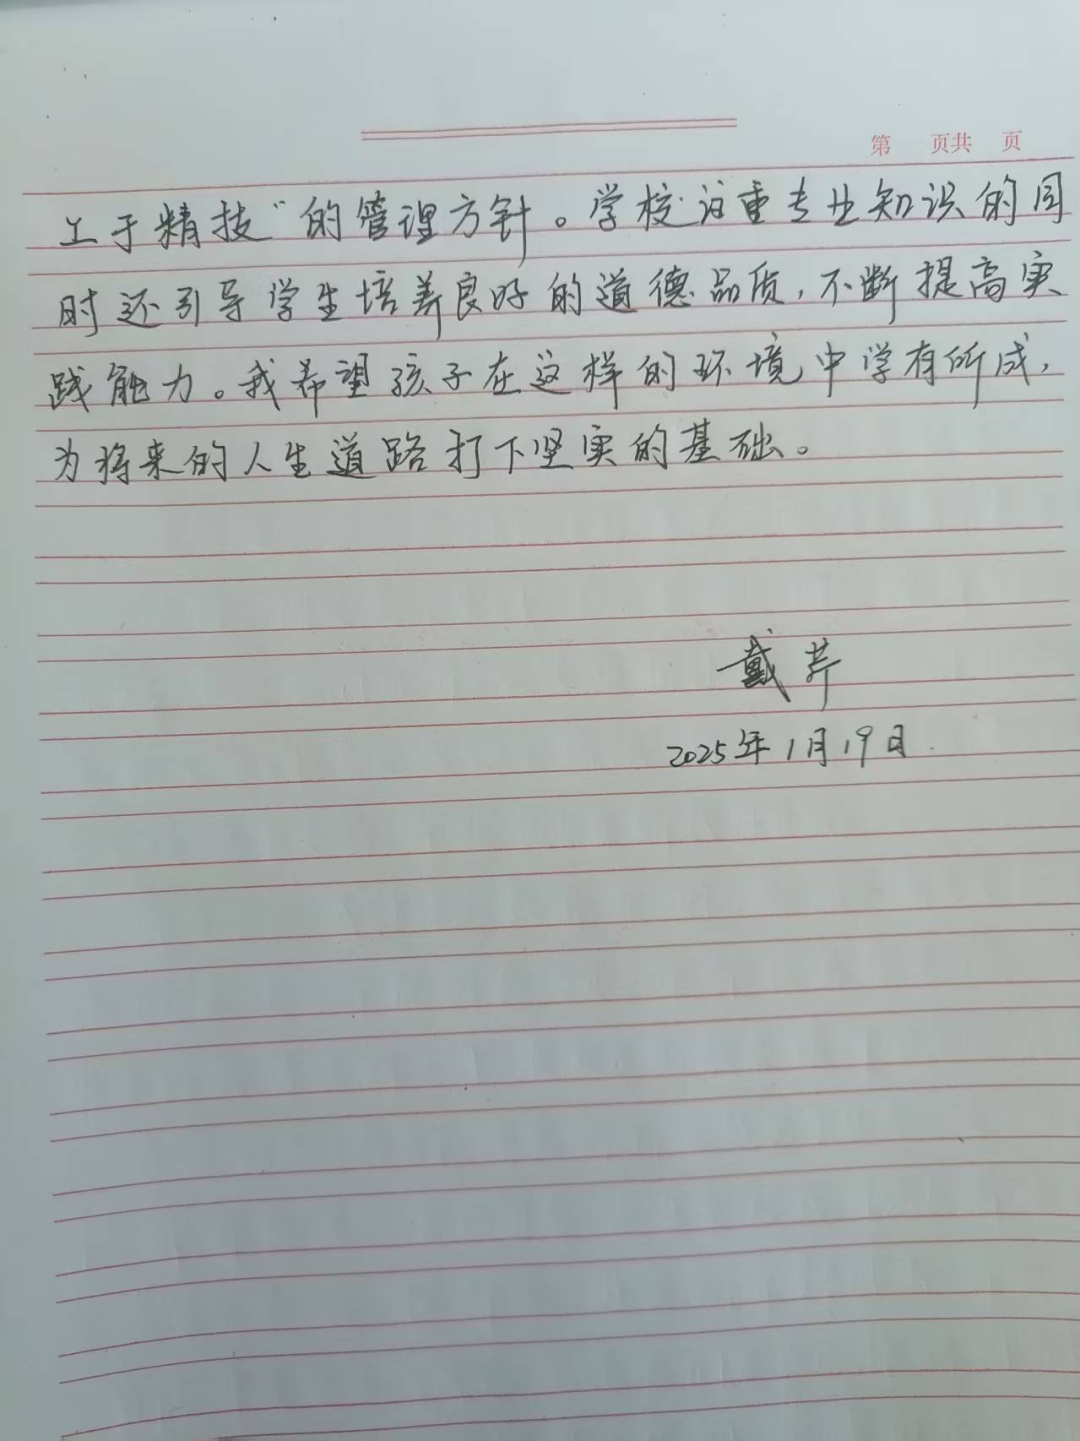 第 页共 页
工于精技”的管理方针。学校注重专业知识的同
时还引导学生培养良好的道德品质，不断提高实
践能力。我希望孩子在这样的环境中学有所成，
为将来的人生道路打下坚实的基础。
戴芹
2025年1月19日.